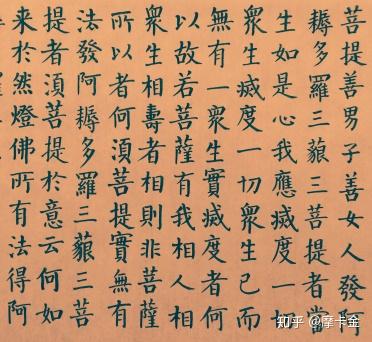 菩提善男子善女人發阿
耨多羅三藐三菩提者當
生如是心我應滅度一切
衆生滅度一切衆生已而
無有一衆生實滅度者何
以故若菩薩有我相人相
衆生相壽者相則非菩薩
所以者何須菩提實無有
法發阿耨多羅三藐三菩
提者須菩提於意云何如
来於然燈佛所有法得阿
知乎 @摩卡金